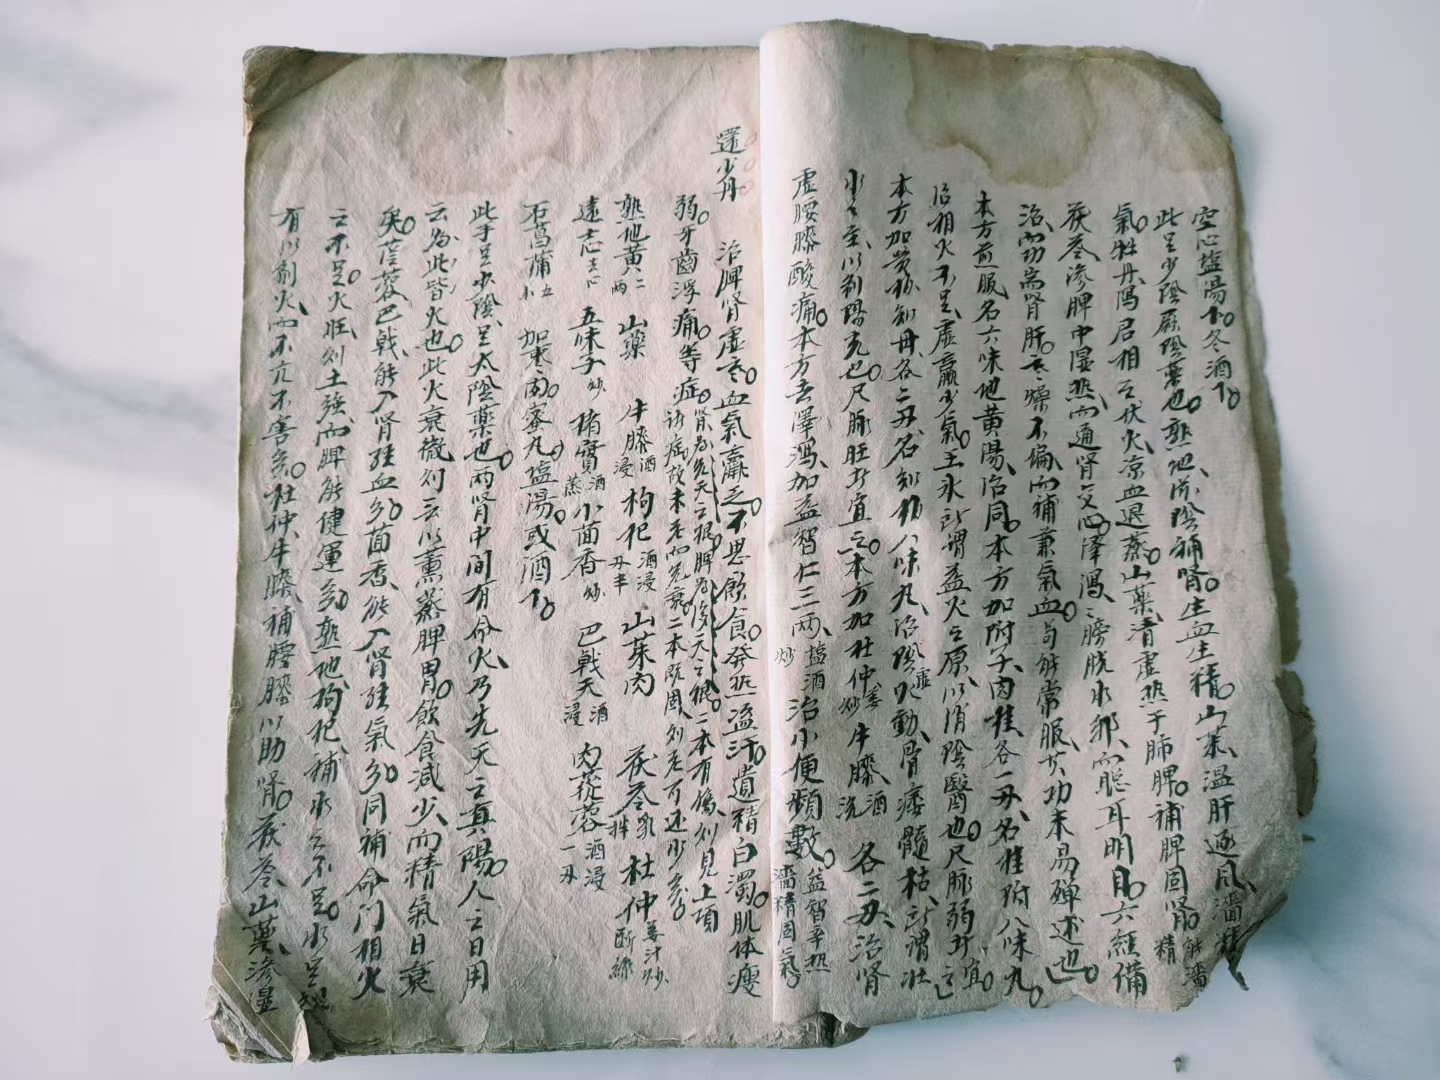 空心塩湯下冬酒下
此足少陰厥陰藥也熟地滋陰補腎生血生精山茱温肝逐風濇精
氣牡丹瀉君相之伏火凉血退蒸山藥清虚热于肺脾補脾固腎能濇精
茯苓滲脾中湿热而通腎交心澤瀉瀉膀胱水邪而聪耳明目六經備
治而功耑腎肝寒燥不偏而補兼氣血苟能常服其功未易殫述也
本方煎服名六味地黄湯治同本方加附子肉桂各一両名桂附八味丸
治相火不足虚羸少氣王氷所謂益火之原以消陰翳也尺脉弱者宜之
本方加黄栢知母各二両名知栢八味丸治陰虚火動骨痿髓枯所謂壮
水之主以制陽光也尺脉旺者宜之本方加杜仲姜炒牛膝酒洗各二両治腎
虚腰膝酸痛本方去澤瀉加益智仁三両塩酒炒治小便頻數益智辛热濇精固氣
還少丹 治脾腎虚寒血氣羸乏不思飲食發热盗汗遺精白濁肌体瘦
弱牙齒浮痛等症腎為先天之根脾為後天之根二本有傷則見上項諸病故未老而先衰二本既固則老可还少矣
熟地黄二両 山藥 牛膝酒浸 枸杞酒浸両半 山茱肉 茯苓乳拌 杜仲姜汁炒断絲
遠志去心 五味子炒 楮實酒蒸 小茴香炒 巴戟天酒浸 肉蓯蓉酒浸一両
石菖蒲五 加枣肉蜜丸塩湯或酒下
此手足少陰足太陰藥也両腎中間有命火乃先天之真陽人之日用
云為此皆火也此火衰微則云以薰蒸脾胃飲食減少而精氣日衰
矣蓯蓉巴戟能入腎經血分茴香能入腎經氣分同補命门相火
之不足火旺則土強而脾能健運矣熟地枸杞補水之不足水足
有以制火而不亢不害矣杜仲牛膝補腰膝以助腎茯苓山藥滲湿